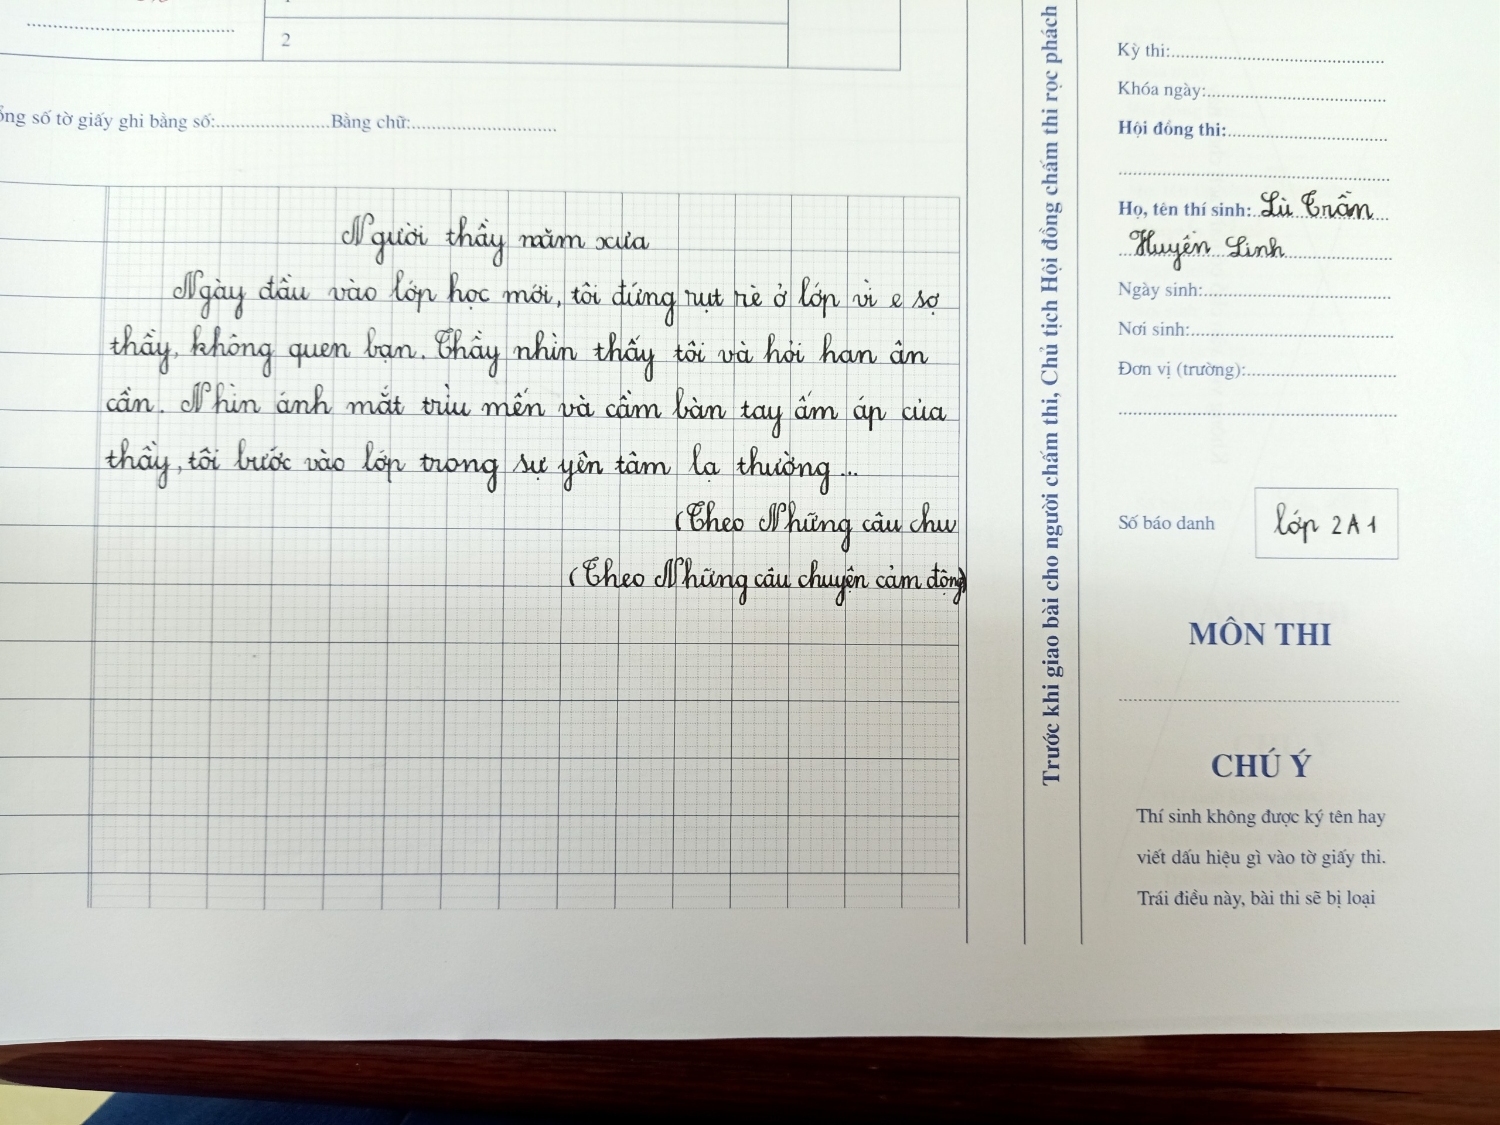 2
ổng số tờ giấy ghi bằng số:....................Bằng chữ:....................
Người thầy năm xưa
Ngày đầu vào lớp học mới, tôi đứng rụt rè ở lớp vì e sợ
thầy, không quen bạn. Thầy nhìn thấy tôi và hỏi han ân
cần. Nhìn ánh mắt trìu mến và cầm bàn tay ấm áp của
thầy, tôi bước vào lớp trong sự yên tâm lạ thường...
(Theo Những câu chu
(Theo Những câu chuyện cảm động)
Trước khi giao bài cho người chấm thi, Chủ tịch Hội đồng chấm thi rọc phách
Kỳ thi:....................
Khóa ngày:....................
Hội đồng thi:....................
Họ, tên thí sinh: Lù Trần
Huyền Linh
Ngày sinh:....................
Nơi sinh:....................
Đơn vị (trường):....................
Số báo danh lớp 2A1
MÔN THI
CHÚ Ý
Thí sinh không được ký tên hay
viết dấu hiệu gì vào tờ giấy thi.
Trái điều này, bài thi sẽ bị loại